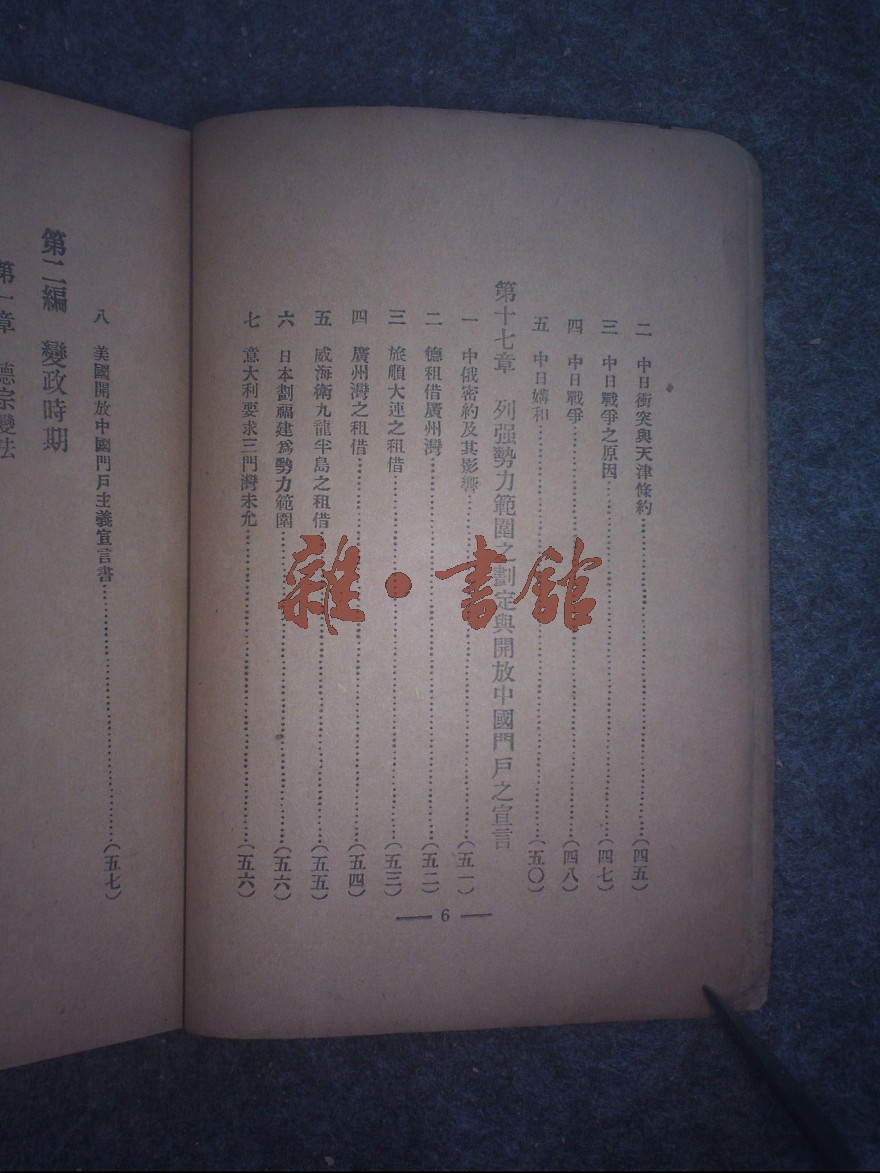 二　中日衝突與天津條約……(四五)
三　中日戰爭之原因……(四七)
四　中日戰爭……(四八)
五　中日媾和……(五〇)
第十七章　列强勢力範圍之劃定與開放中國門戶之宣言
一　中俄密約及其影響……(五一)
二　德租借廣州灣……(五二)
三　旅順大連之租借……(五三)
四　廣州灣之租借……(五四)
五　威海衛九龍半島之租借……(五五)
六　日本劃福建爲勢力範圍……(五六)
七　意大利要求三門灣未允……(五六)
— 6 —
八　美國開放中國門戶主義宣言書……(五七)
第二編　變政時期
第一章　德宗變法
雜·書館